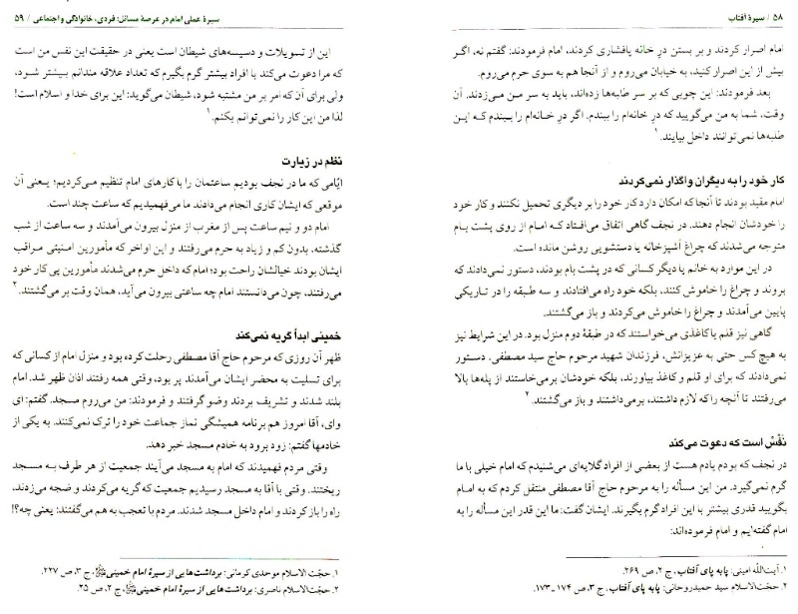 ۵۸ / سیرهٔ آفتاب
امام اصرار کردند و بر بستن درِ خانه پافشاری کردند، امام فرمودند: گفتم نه، اگر
بیش از این اصرار کنید، به خیابان می‌روم و از آنجا هم به سوی حرم می‌روم.
بعد فرمودند: این چوبی که بر سر طلبه‌ها زده‌اند، باید به سر من می‌زدند. آن
وقت، شما به من می‌گویید که درِ خانه‌ام را ببندم. اگر درِ خانه‌ام را ببندم که این
طلبه‌ها نمی‌توانند داخل بیایند.۱
کار خود را به دیگران واگذار نمی‌کردند
امام مقید بودند تا آنجا که امکان دارد کار خود را بر دیگری تحمیل نکنند و کار خود
را خودشان انجام دهند. در نجف گاهی اتفاق می‌افتاد که امام از روی پشت بام
متوجه می‌شدند که چراغ آشپزخانه یا دستشویی روشن مانده است.
در این موارد به خانم یا دیگر کسانی که در پشت بام بودند، دستور نمی‌دادند که
بروند و چراغ را خاموش کنند، بلکه خود راه می‌افتادند و سه طبقه را در تاریکی
پایین می‌آمدند و چراغ را خاموش می‌کردند و باز می‌گشتند.
گاهی نیز قلم یا کاغذی می‌خواستند که در طبقهٔ دوم منزل بود. در این شرایط نیز
به هیچ کس حتی به عزیزانش، فرزندان شهید مرحوم حاج سید مصطفی، دستور
نمی‌دادند که برای او قلم و کاغذ بیاورند، بلکه خودشان برمی‌خاستند از پله‌ها بالا
می‌رفتند تا آنچه را که لازم داشتند، برمی‌داشتند و باز می‌گشتند.۲
نَفْس است که دعوت می‌کند
در نجف که بودم یادم هست از بعضی از افراد گلایه‌ای می‌شنیدم که امام خیلی با ما
گرم نمی‌گیرد. من این مسأله را به مرحوم حاج آقا مصطفی منتقل کردم که به امام
بگویید قدری بیشتر با این افراد گرم بگیرند. ایشان گفت: ما این قدر این مسأله را به
امام گفته‌ایم و امام فرموده‌اند:
۱. آیت‌الله امینی: پابه پای آفتاب، ج ۲، ص ۲۶۹.
۲. حجّت‌الاسلام سید حمید روحانی: پابه پای آفتاب، ج ۳، ص ۱۷۴ ـ ۱۷۳.
سیرهٔ عملی امام در عرصهٔ مسائل: فردی، خانوادگی و اجتماعی / ۵۹
این از تسویلات و دسیسه‌های شیطان است یعنی در حقیقت این نفس من است
که مرا دعوت می‌کند با افراد بیشتر گرم بگیرم که تعداد علاقه مندانم بیشتر شود،
ولی برای آن که امر بر من مشتبه شود، شیطان می‌گوید: این برای خدا و اسلام است!
لذا من این کار را نمی‌توانم بکنم.۱
نظم در زیارت
ایّامی که ما در نجف بودیم ساعتمان را با کارهای امام تنظیم می‌کردیم؛ یعنی آن
موقعی که ایشان کاری انجام می‌دادند ما می‌فهمیدیم که ساعت چند است.
امام دو و نیم ساعت پس از مغرب از منزل بیرون می‌آمدند و سه ساعت از شب
گذشته، بدون کم و زیاد به حرم می‌رفتند و این اواخر که مأمورین امنیتی مراقب
ایشان بودند خیالشان راحت بود؛ امام که داخل حرم می‌شدند مأمورین پی کار خود
می‌رفتند، چون می‌دانستند امام چه ساعتی بیرون می‌آید، همان وقت بر می‌گشتند.۲
خمینی ابداً گریه نمی‌کند
ظهر آن روزی که مرحوم حاج آقا مصطفی رحلت کرده بود و منزل امام از کسانی که
برای تسلیت به محضر ایشان می‌آمدند پر بود، وقتی همه رفتند اذان ظهر شد. امام
بلند شدند و تشریف بردند وضو گرفتند و فرمودند: من می‌روم مسجد. گفتم: ای
وای، آقا امروز هم برنامه همیشگی نماز جماعت خود را ترک نمی‌کنند. به یکی از
خادمها گفتم: زود برود به خادم مسجد خبر دهد.
وقتی مردم فهمیدند که امام به مسجد می‌آیند جمعیت از هر طرف به مسجد
ریختند. وقتی با آقا به مسجد رسیدیم جمعیت که گریه می‌کردند و ضجه می‌زدند،
راه را باز کردند و امام داخل مسجد شدند. مردم با تعجب به هم می‌گفتند: یعنی چه؟!
۱. حجّت الاسلام موحدی کرمانی: برداشت‌هایی از سیرهٔ امام خمینی، ج ۳، ص ۲۲۷.
۲. حجّت الاسلام ناصری: برداشت‌هایی از سیرهٔ امام خمینی، ج ۲، ص ۲۵.